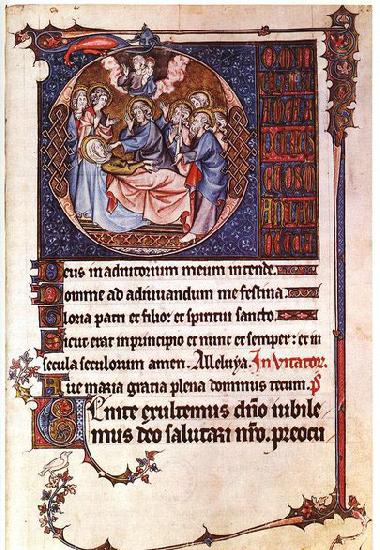 Deus in adiutorium meum intende.
Domine ad adiuuandum me festina
Gloria patri et filio et spiritui sancto.
Sicut erat in principio et nunc et semper: et in
secula seculorum amen. Alleluya. Inuitator.
Aue maria gratia plena dominus tecum. p̃s
Uenite exultemus dño iubile
mus deo salutari nr̃o. preocu